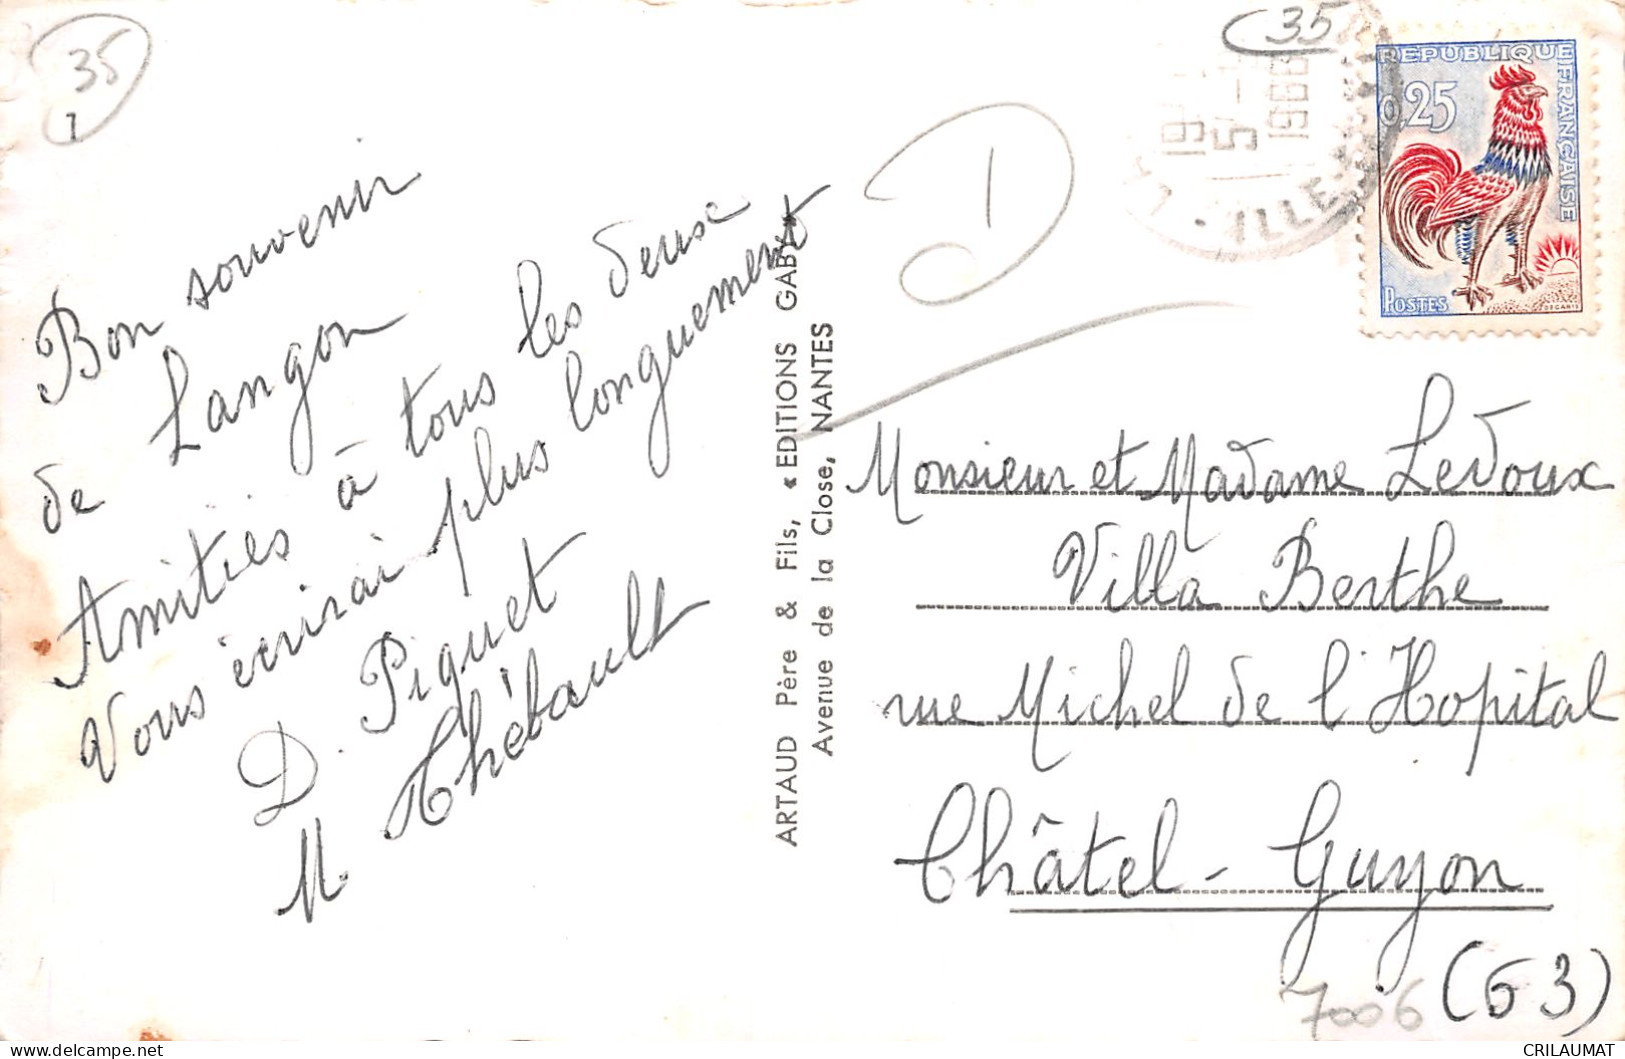 35
1
Bon souvenir
de Langon
Amitiés à tous les deux
Vous écrirai plus longuement
D. Piquet
M. Thébault
ARTAUD Père & Fils, « EDITIONS GABY »
Avenue de la Close, NANTES
D
35
19
5
1966
ILLE
REPUBLIQUE
FRANÇAISE
0,25
POSTES
DECARIS
Monsieur et Madame Ledoux
Villa Berthe
rue Michel de l'Hopital
Châtel-Guyon
(63)
7006
CRILAUMAT